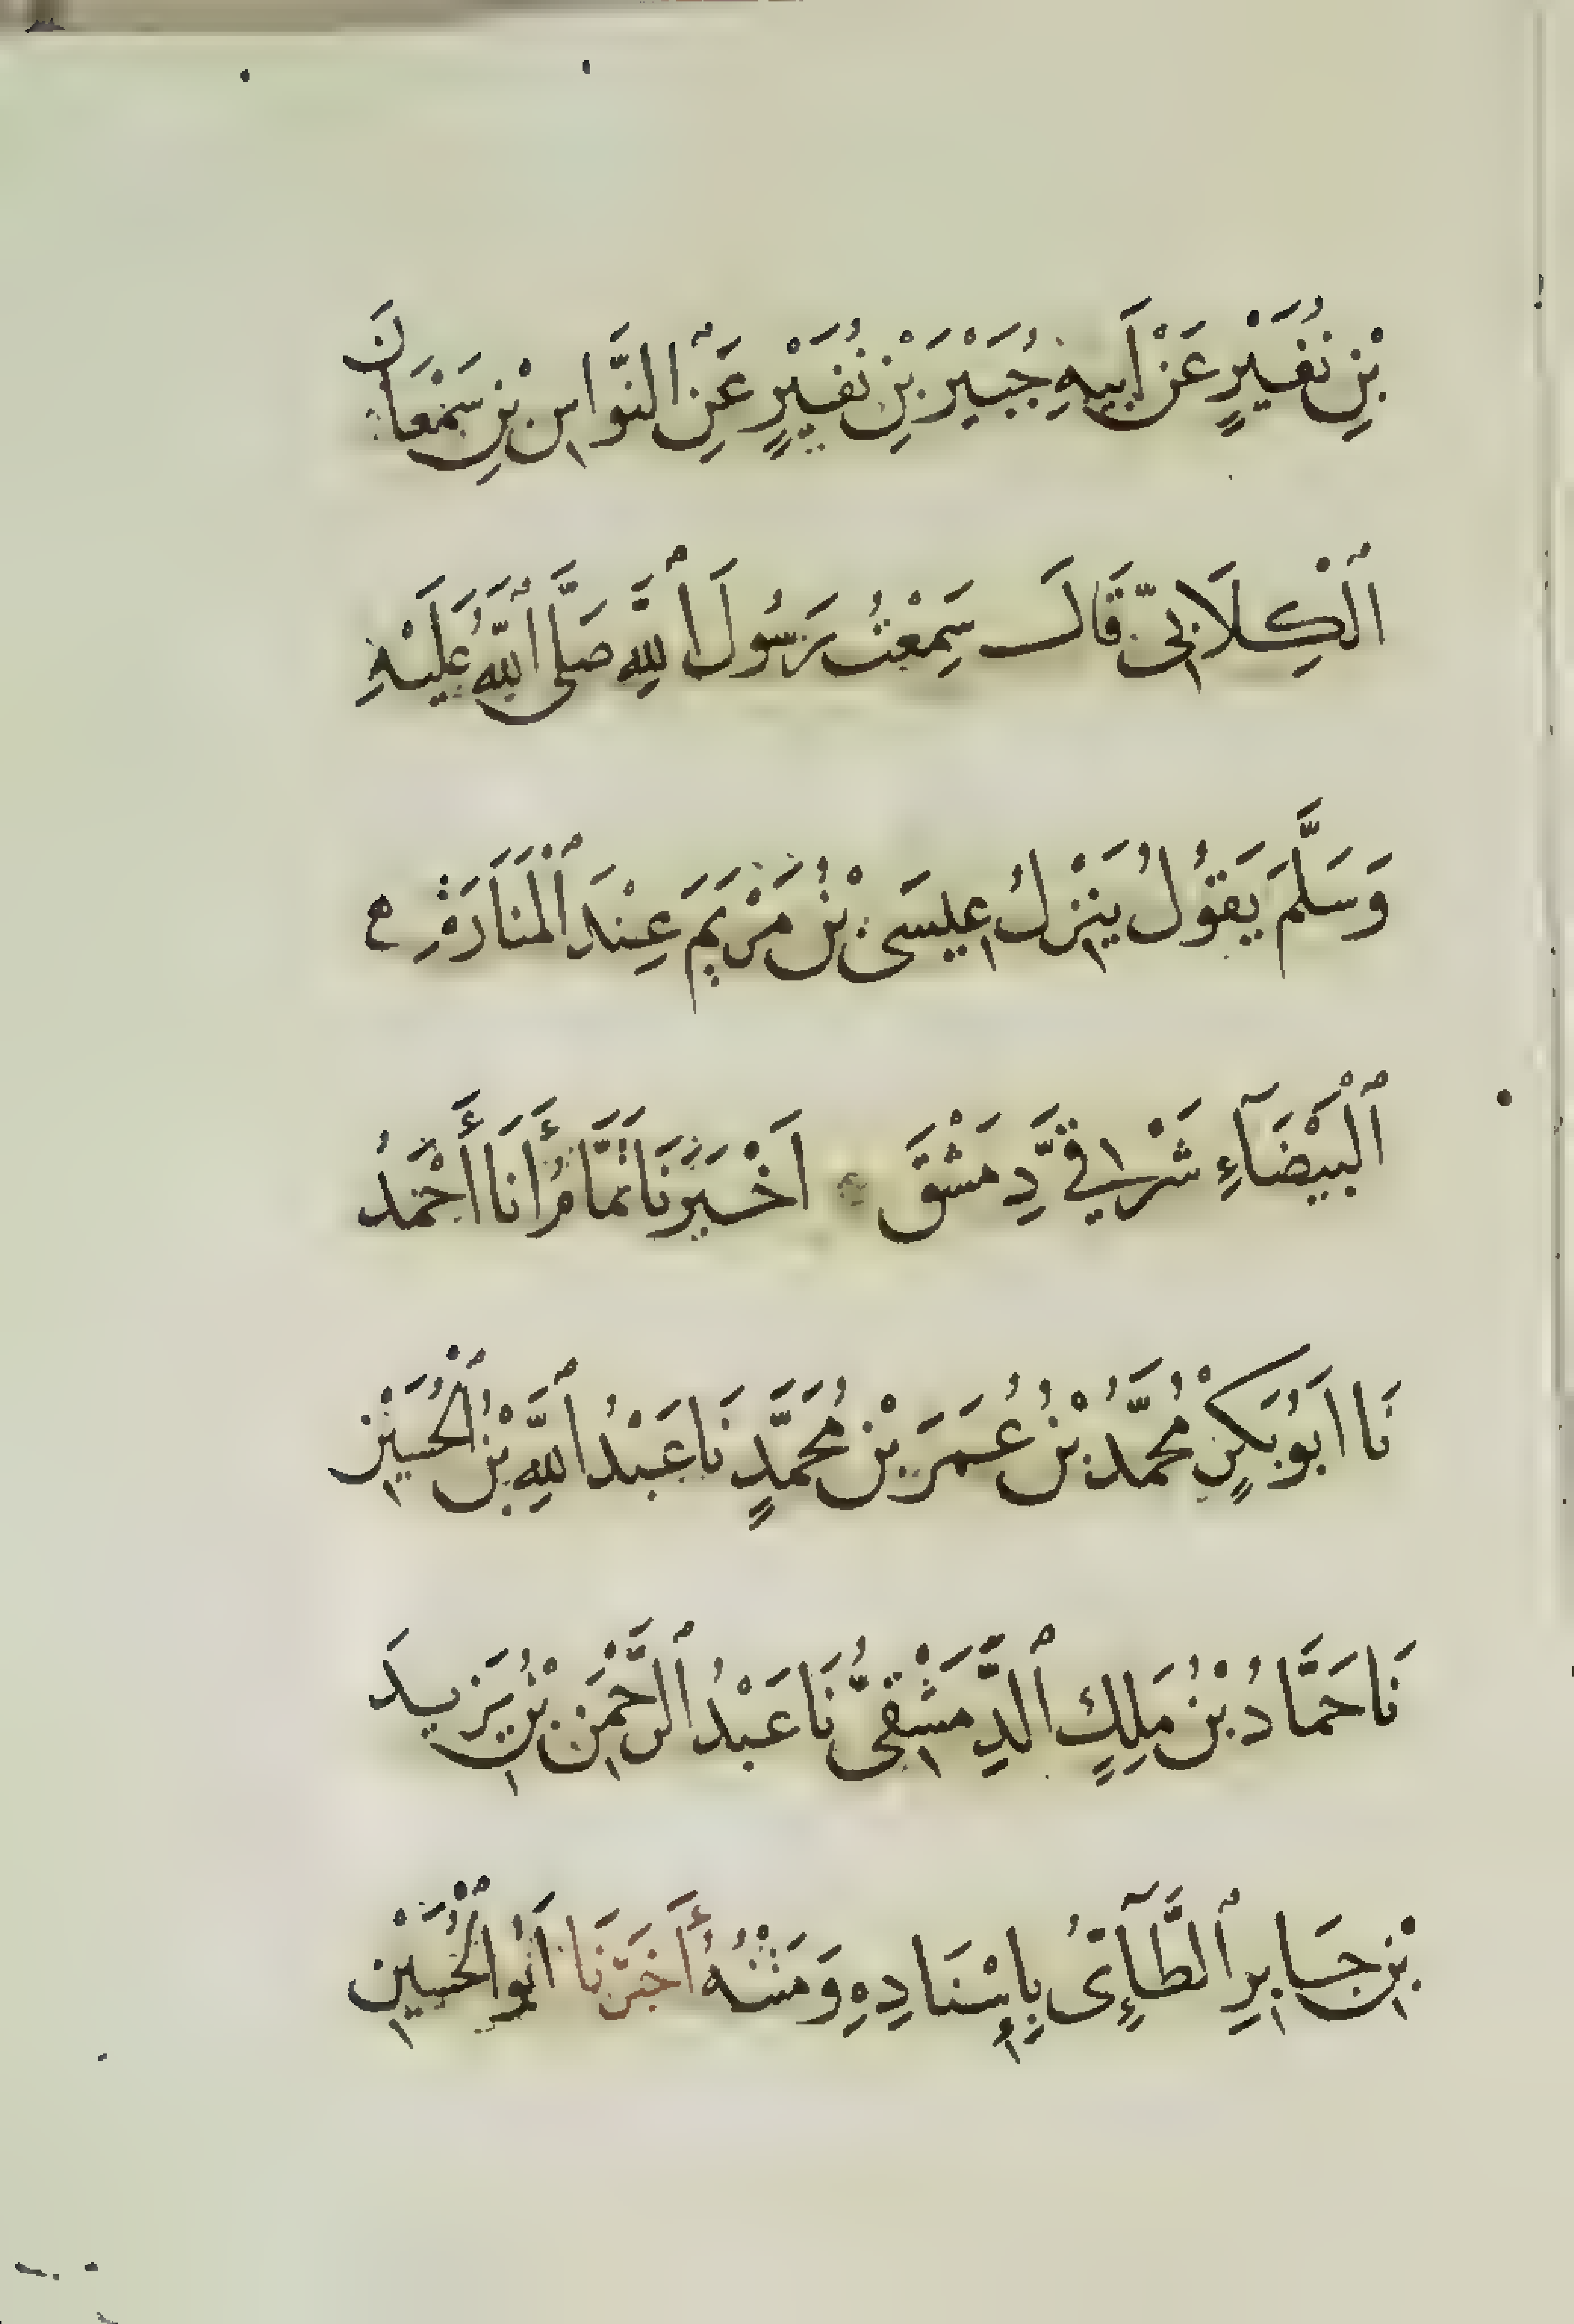 بْنِ نُفَيْرٍ عَنْ أَبِيهِ جُبَيْرَ بْنِ نُفَيْرٍ عَنِ ٱلنَّوَاسِ بْنِ سَمْعَانَ
ٱلْكِلَابِيِّ قَالَ سَمِعْتُ رَسُولَ ٱللَّهِ صَلَّى ٱللَّهُ عَلَيْهِ
وَسَلَّمَ يَقُولُ يَنْزِلُ عِيسَى بْنُ مَرْيَمَ عِنْدَ ٱلْمَنَارَةِ
ٱلْبَيْضَآءِ شَرْقِيَّ دِمَشْقَ أَخْبَرَنَا تَمَّامُ أَنَا أَحْمَدُ
نَا أَبُو بَكِرٍ مُحَمَّدُ بْنُ عُمَرَ بْنِ مُحَمَّدٍ نَا عَبْدُ ٱللَّهِ بْنُ ٱلْحُسَيْنِ
نَا حَمَّادُ بْنُ مَلِكٍ ٱلدِّمَشْقِيُّ نَا عَبْدُ ٱلرَّحْمَنِ بْنُ يَزِيدَ
بْنِ جَابِرِ ٱلطَّآئِيُّ بِإِسْنَادِهِ وَمَتْنُهُ أَخْبَرَنَا أَبُو ٱلْحُسَيْنِ